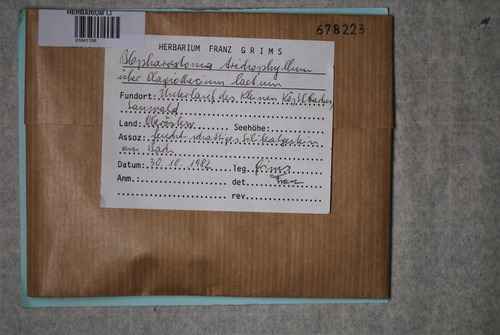 HERBARIUM LI
678223
HERBARIUM FRANZ GRIMS
Blepharostoma trichophyllum
über Plagiothecium laetum
Fundort: Unterlauf des Kleinen Kößlbaches,
Sauwald
Land: Seehöhe:
Assoz: feucht schattiges Silikatgestein
am Bach
Datum: 30. 10. 1982 leg. Grims
Anm.: det. Franz
rev.